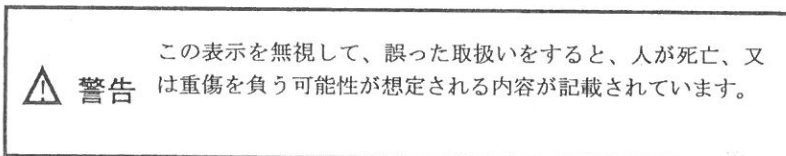 この表示を無視して、誤った取扱いをすると、人が死亡、又
⚠ 警告 は重傷を負う可能性が想定される内容が記載されています。